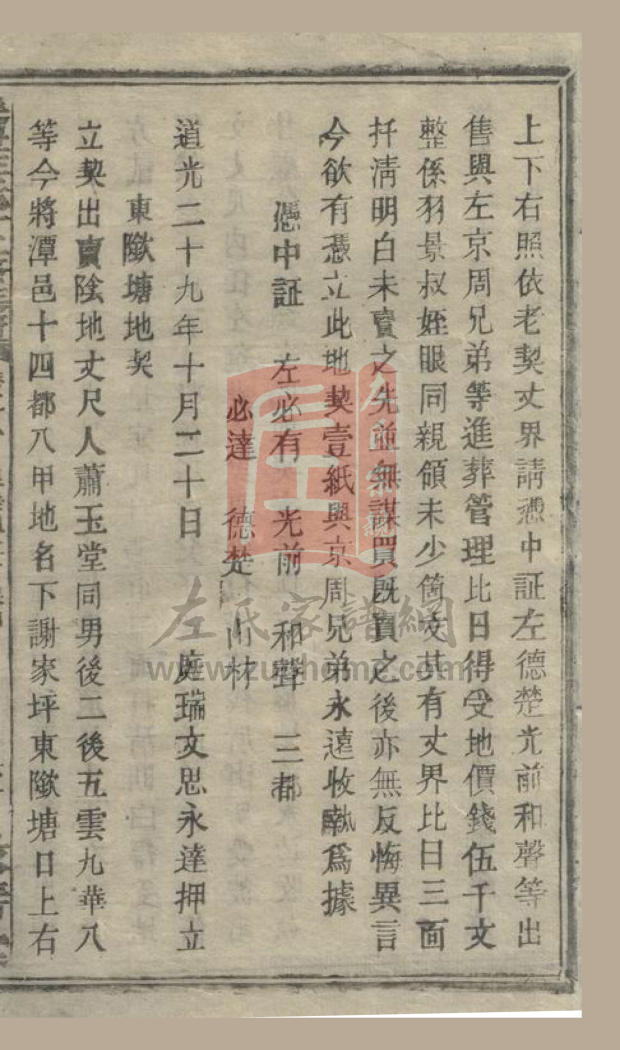 上下右照依老契丈界請憑中証左德楚光前和聲等出
售與左京周兄弟等進葬管理比日得受地價錢伍千文
整係羽景叔姪眼同親領未少箇文其有丈界比日三面
扦清明白未賣之先並無謀買既賣之後亦無反悔異言
今欲有憑立此地契壹紙與京周兄弟永遠收執爲據
憑中証 左必有 光前 和聲 三都
必達 德楚 山林
道光二十九年十月二十日 庭瑞文思永達押立
東塘地契
立契出賣陰地丈尺人蕭玉堂同男後二後五雲九華八
等今將潭邑十四都八甲地名下謝家坪東塘日上右
左氏家譜網
www.zuohome.com